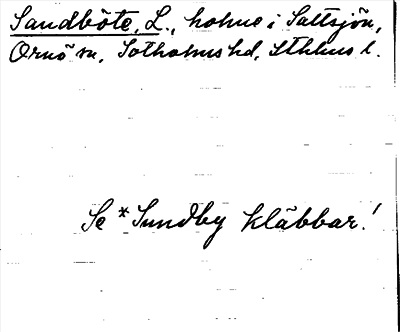 Sandböte, L., holme i Saltsjön,
Ornö sn, Sotholms hd, Sthlms l.
Se *Sundby kläbbar!